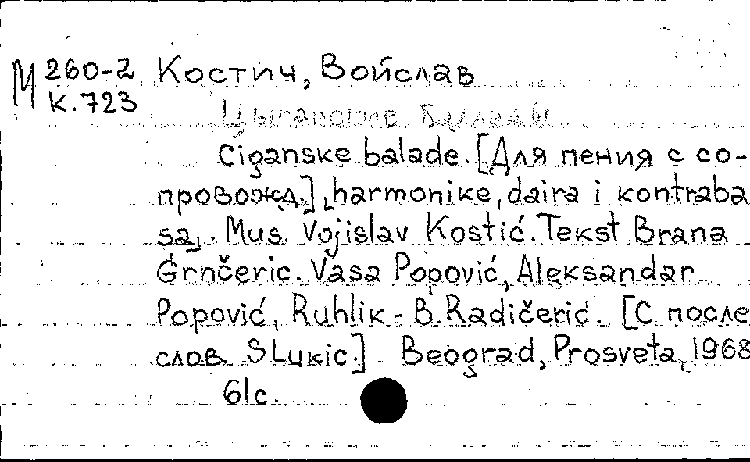 М 260-2 Костич, Войслав
К.723
Цыганские баллады
Ciganske balade. [Для пения с со-
провожд.] „harmonike, daira i kontraba
sa„. Mus. Vojislav Kostić. Tekst Brana
Crnčeric. Vasa Popović, Aleksandar
Popović, Ruhlik - B. Radičerić. [С после
слов. SLukic.] Beograd, Prosveta, 1968
61c.